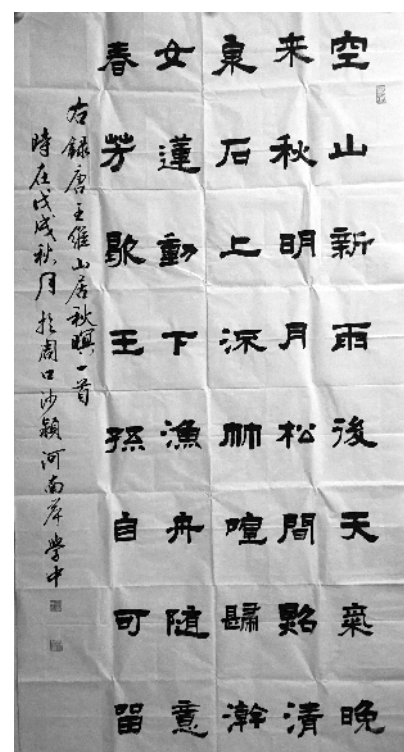 空山新雨後天氣晚
来秋明月松間照清
泉石上流竹喧歸澣
女蓮動下漁舟随意
春芳歇王孫自可留
右録唐王維山居秋暝一首
時在戊戌秋月於周口沙潁河南岸學中